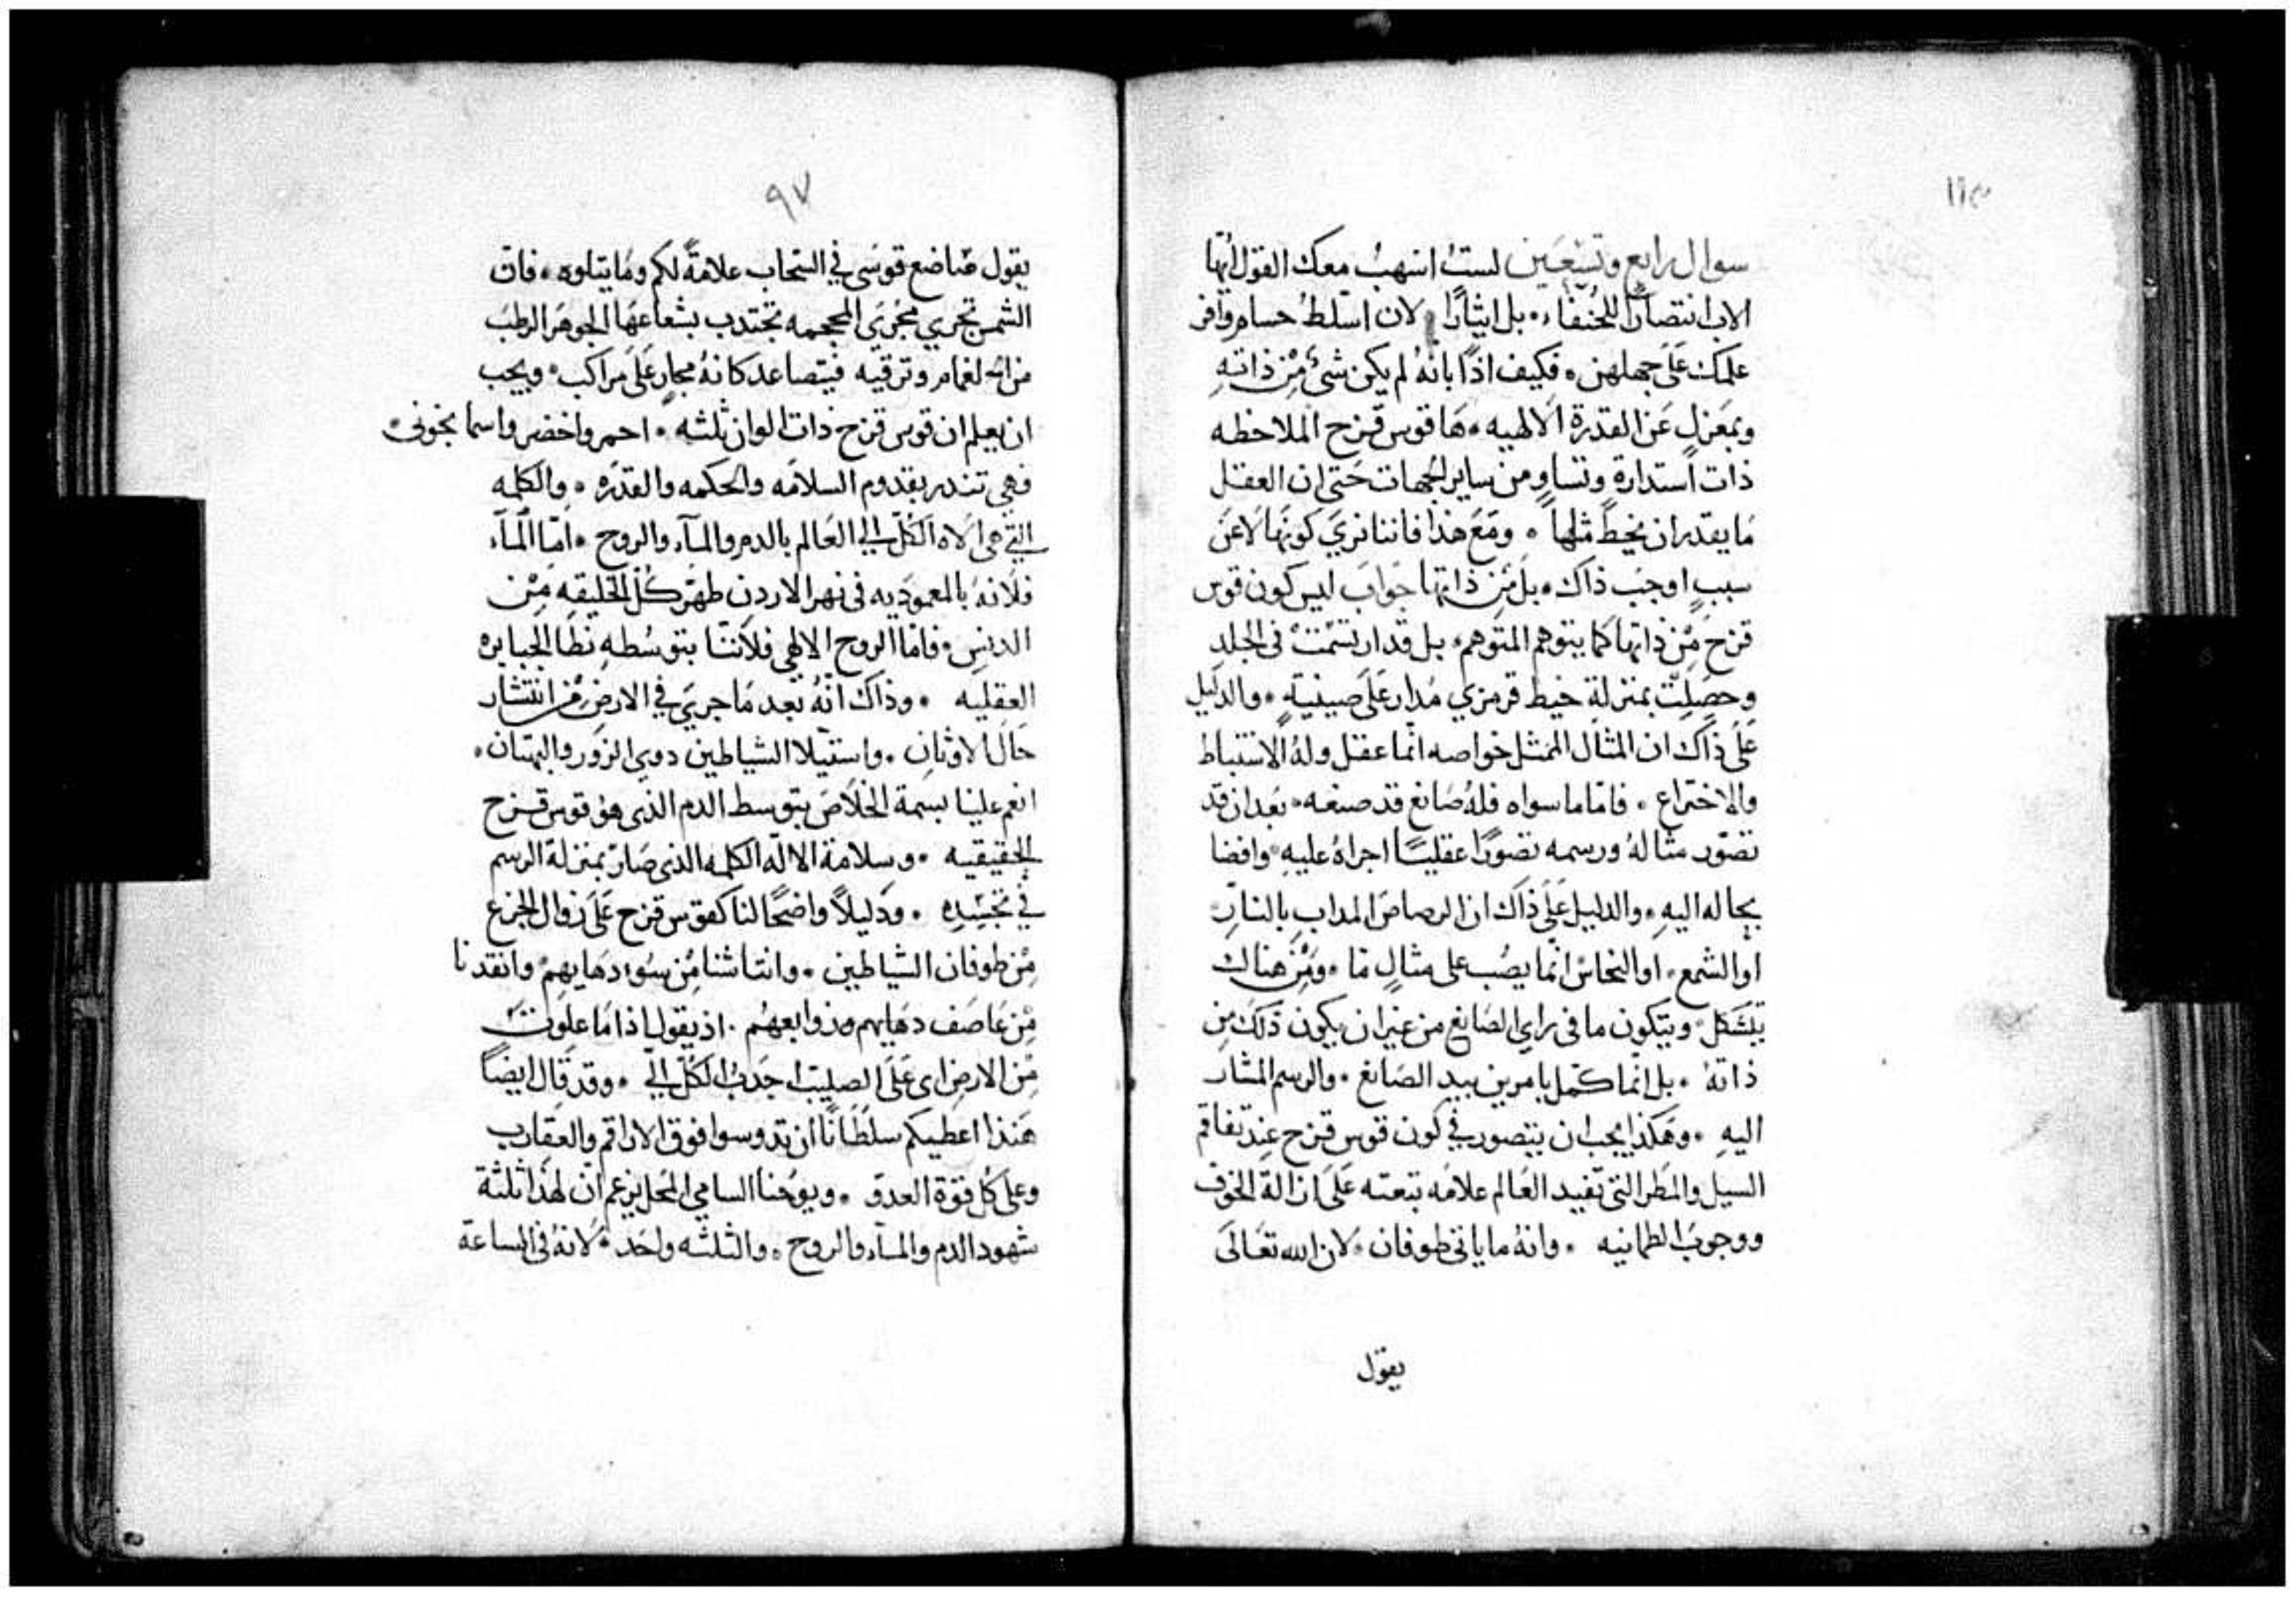 ١١٣
سوال رابع وتسعين لستُ اسهبُ معك القول ايها
الاب انتصارًا للحنفاء، بل ايثارًا لان اسلطُ حسام وافر
علمك عَلَى جهلهن، فكيف اذًا بانهُ لم يكن شئٌ مِنْ ذاتهِ
وبمعَزلٍ عَن القدرة الالهيه، هَا قوس قزح الملاحظه
ذات استدارةٍ وتساوٍ من ساير الجهات حَتى ان العقل
مَا يقدر ان يخيطَ مثلها، ومَعَ هذا فاننا نرَي كونهَا لاعَن
سببٍ اوجبَ ذاك، بل مَن ذاتها جَوابَ ليس كون قوس
قزحَ مِنْ ذاتها كما يتوهم المتوهم، بل قد ارتسَمتْ فى الجلدِ
وحصَلِتْ بمنزلةِ خيط قرمزي مُدار عَلَى صينيةٍ، والدَليل
عَلَى ذاكَ ان المثال الممثل خواصه انما عقل ولهُ الاستنباط
والاختراع، فامَا ما سواه فلهُ صَانع قد صنعه، بعَد ان قد
تصَوّر مثالهُ ورسمه تصَورًا عقليًا اجراهُ عليهِ، وافضا
بحاله اليهِ، والدليل عَلَى ذاكَ ان الرصاصَ المداب بالنارِ
او الشمع، او النحاسْ انما يصُب على مثالٍ مَا، ومِن هناك
يتشكل، ويتكون ما فى راىِ الصَايغ من غير ان يكون ذلكَ من
ذاته، بل انما كمَل بامرين بيد الصَايغ، والرسم المشار
اليهِ، وهَكذا يجب ان يتصور في كون قوس قزح عِند تفاقم
السيل والمَطر التى تفيد العَالم علامَه بتعته عَلَى ازالة الخوف
ووجوبُ الطمانيه، وانهُ ما ياتى طوفان، لان الله تعَالَى
يقول
٩٧
يقول هَا اضع قوسَى في السَحاب علامةً لكم ومَا يتلوه، فان
الشمس تجري مجُرَى المحجمه تجتدب بشعاعهَا الجوهَر الرطبَ
من الغمام وترقيه فيتصاعد كانهُ مجارٍ عَلَى مراكب، ويجب
ان يعلم ان قوس قزح ذات الوان ثلثه، احمر واخضر واسمانجونى
فهى تنذر بقدوم السلامَه والحكمه والقدَره، والكلمه
التى هى الاه الكلّ الي العَالم بالدم والمآء والروح، امَا المآء
فلانهُ بالمعموَديه فى نهر الاردن طهَر كلُ الخليقهِ مِنْ
الدنس، فامَا الروح الالهي فلانَنا بتوسُطهِ نطَا الجبابره
العقليه، وذاكَ انّهُ بعد مَا جرىَ في الارضِ من انتشار
حَال الاوثان، واستيلا الشياطين دوي الزور والبهتان،
انعم علينا بسمة الخلاصَ بتوسط الدم الذى هو قوس قزح
الحقيقيه، وسلامة الاله الكلمه الذى صَار بمنزلة الرسم
في تجسّدِه، ودَليلاً واضحًا لنا كقوس قزح عَلَى زوال الجزع
مِنْ طوفان الشياطين، وانتاشنا مُن سُو دهَايهمْ، وانقدنا
مِنْ عَاصَف دهَايهم وزوابعهُم، اذ يقول اذا مَا علوتُ
مِنْ الارض اى عَلَى الصليب اجدبُ الكلُ اليّ، وقد قال ايضًا
هَنذا اعطيكم سلطَانًا ان تدوسوا فوق الاراقم والعقارب
وعلى كُل قوة العدوّ، ويوُحنا السامي المحل يزعم ان لهَذا ثلثة
شهود الدم والمآء والروح، والثلثه واحَد، لانهُ فى الساعة